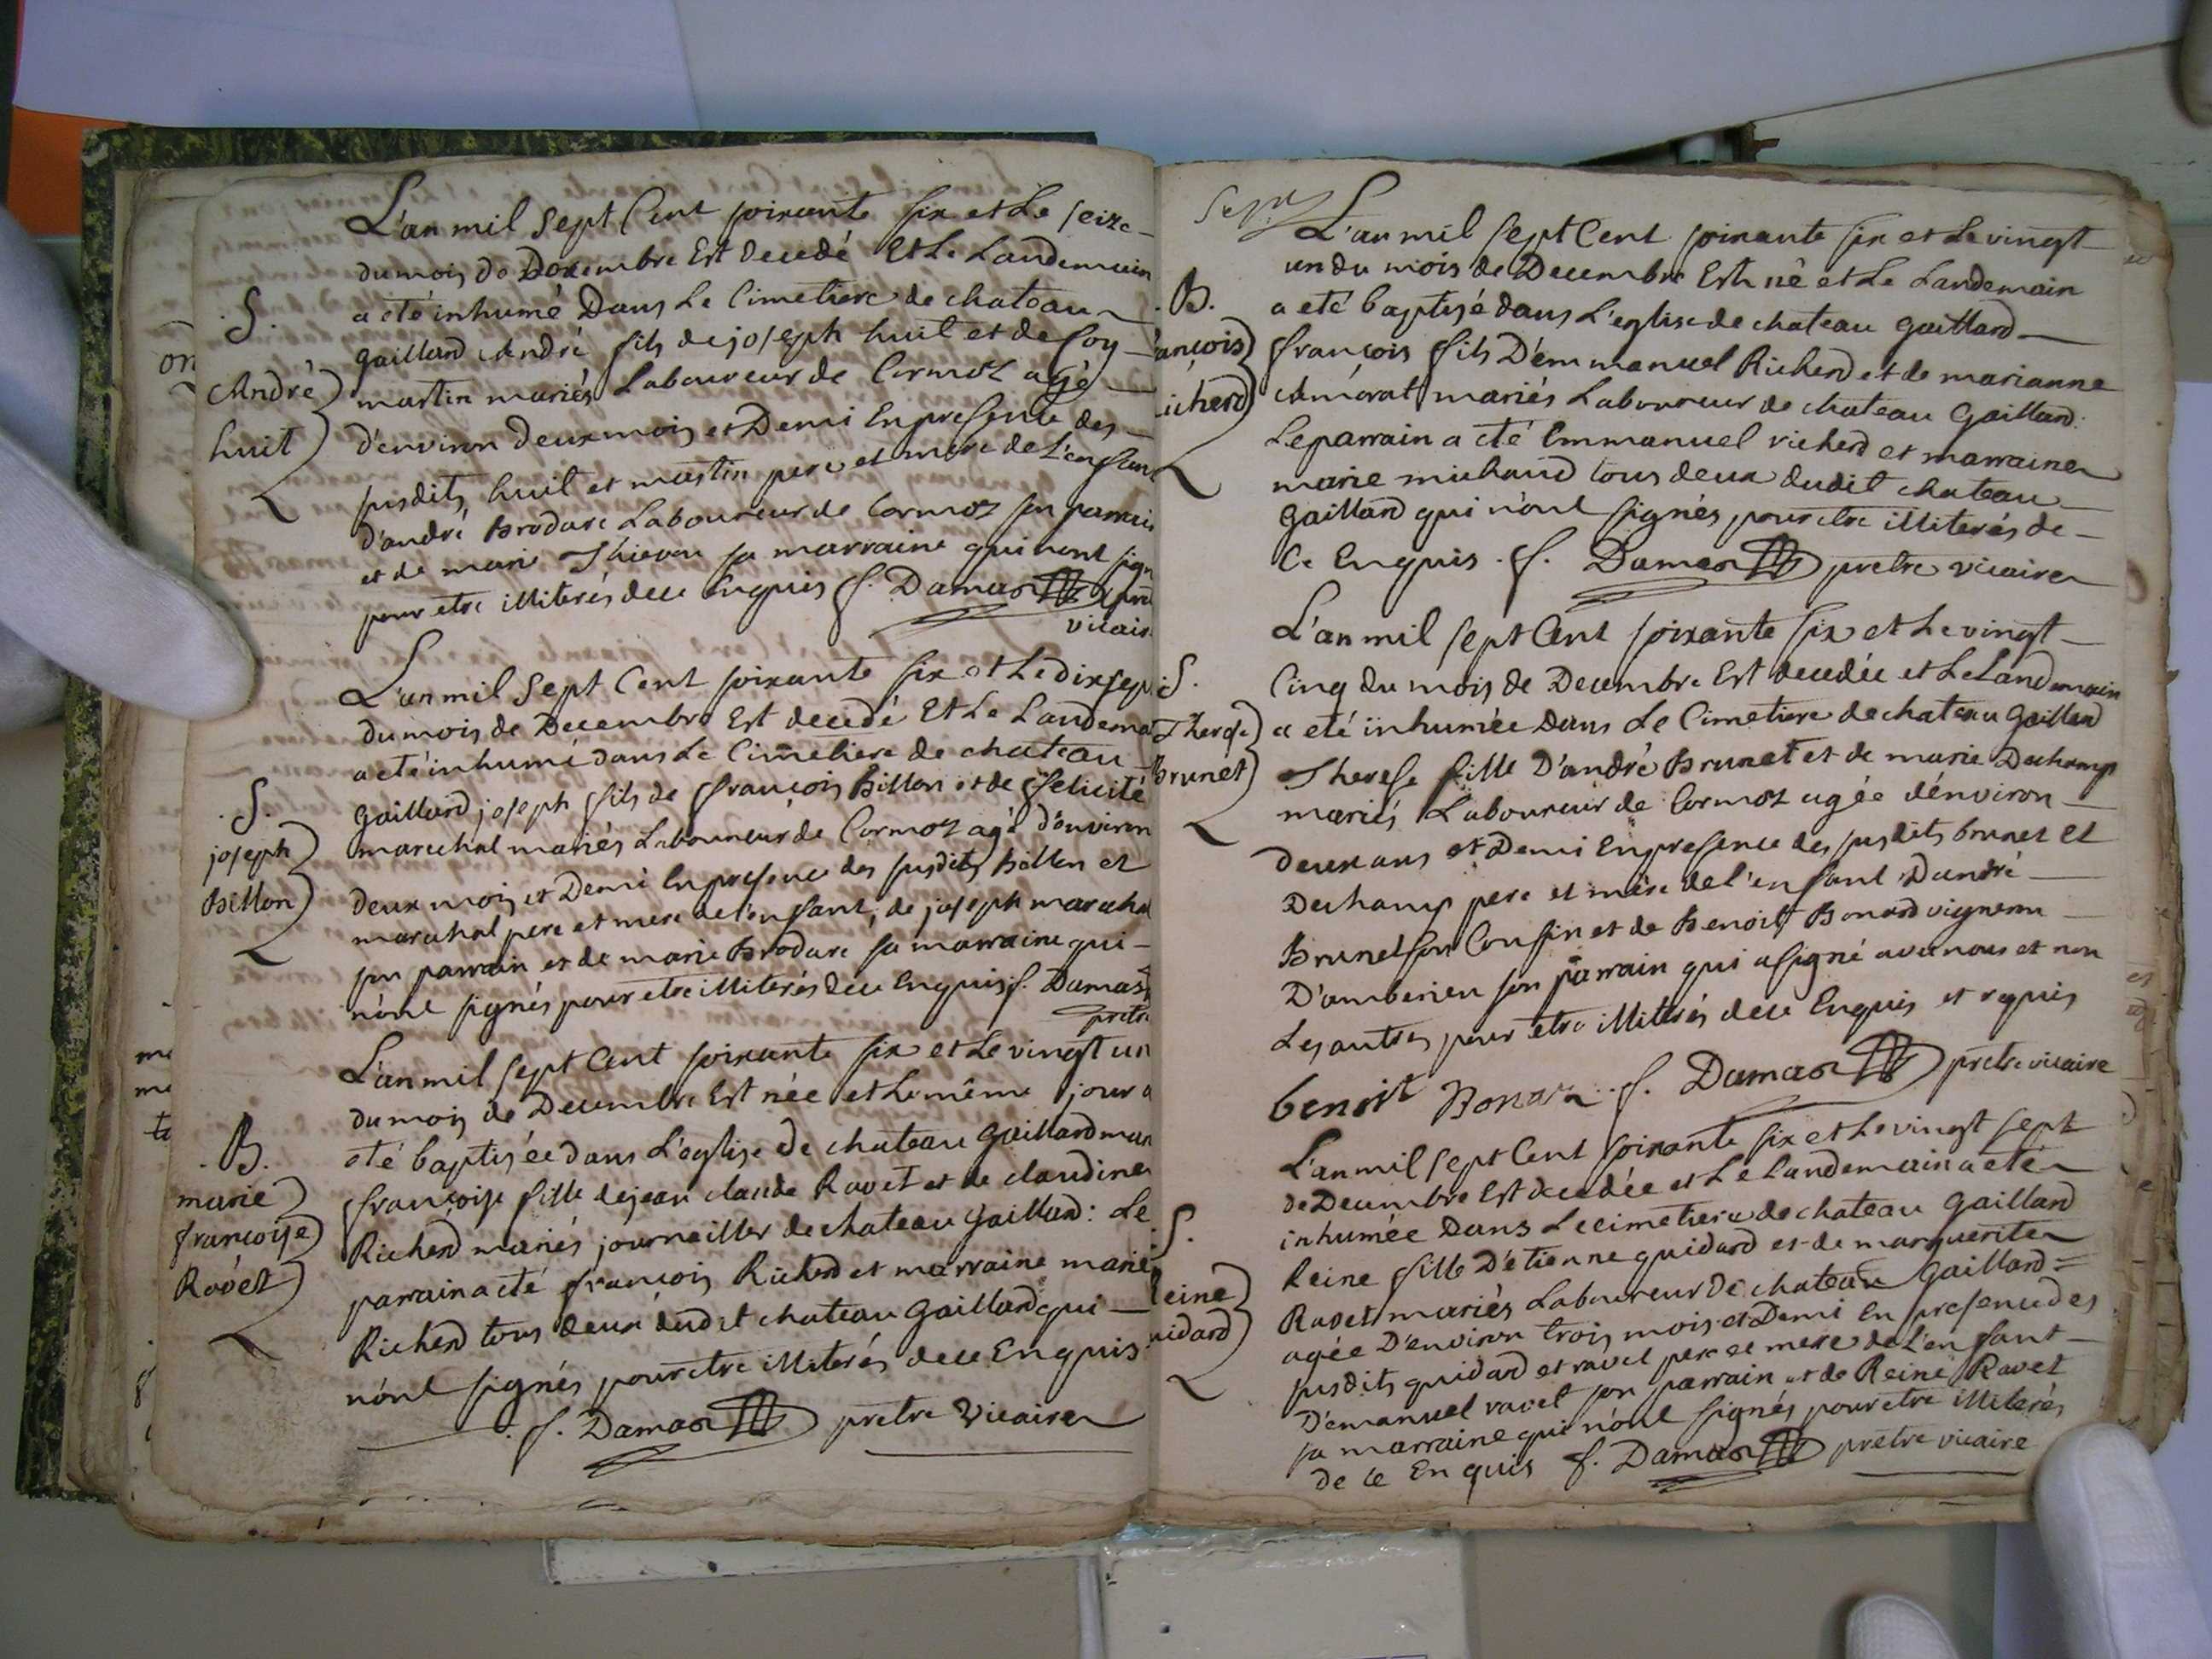 L'an mil Sept Cent soixante six et Le seize
du mois de Decembre Est decedé Et Le Landemain
a eté inhumé Dans Le Cimetiere de chateau
.S.
gaillard André fils de joseph huit et de foy
André
martin mariés Laboureur de Cormoz agé
huit
d'environ deux mois et Demi En presence des
susdits huit et martin pere et mere de L'enfant
d'andré Brodare Laboureur de Cormoz son parrain
et de marie Thievon sa marraine qui nont sign
pour etre illiterés de ce Enquis f. Damas pre
vicair
L'an mil Sept Cent soixante six et Le dix sep
du mois de Decembre Est decedé Et Le Landema
a eté inhumé dans Le Cimetiere de chateau
.S.
gaillard joseph fils de françois Billon et de felicité
joseph
marechal mariés Laboureur de Cormoz agé d'environ
Billon
deux mois et Demi En presence des susdits Billon et
marechal pere et mere de l'enfant, de joseph marecha
son parrain et de marie Brodare sa marraine qui
n'ont signés pour etre illiterés de ce Enquis f. Damas
pretre
L'an mil sept Cent soixante six et Le vingt un
du mois de Decembre Est née et Le même jour a
eté baptisée dans L'eglise de chateau gaillard mari
.B.
françoise fille de jean claude Ravet et de claudine
marie
françoise
Richerd mariés journeillier de chateau gaillard: Le
Ravet
parrain a eté françois Richerd et marraine marie
Richerd tous deux dudit chateau Gaillard qui
n'ont signés pour etre illiterés de ce Enquis
f. Damas pretre Vicaire
L'an mil sept Cent soixante six et Le vingt
un du mois de Decembre Est né et Le Landemain
.B.
a eté baptisé dans L'eglise de chateau gaillard
ançois
françois fils D'emmanuel Richerd et de marianne
icherd
Amorat mariés Laboureur de chateau Gaillard:
Le parrain a eté Emmanuel richerd et marraine
marie michaud tous deux dudit chateau
gaillard qui n'ont signés pour etre illiterés de
Ce Enquis. f. Damas pretre vicaire
L'an mil sept Cent soixante six et Le vingt
S.
Cinq du mois de Decembre Est decedée et Le Landemain
Therese
a eté inhumée Dans Le Cimetiere de chateau Gaillard
Brunet
Therese fille D'andré Brunet et de marie Dechamp
mariés Laboureur de Cormoz agée d'environ
deux ans et Demi En presence des susdits brunet Et
Dechamp pere et mere de l'enfant D'andré
Brunet son Cousin et de Benoit Bonard vigneron
D'amberieu son parrain qui a signé avec nous et non
Les autres pour etre illiterés de ce Enquis et requis
benoit Bonard f. Damas pretre vicaire
L'an mil sept Cent soixante six et Le vingt sept
de Decembre Est decedée et Le Landemain a eté
S.
inhumée Dans Le cimetiere de chateau gaillard
Reine fille D'etienne guidard et de marguerite
eine
Ravet mariés Laboureur de chateau Gaillard
uidard
agée D'environ trois mois et Demi En presence des
susdits guidard et ravet pere et mere de L'enfant
D'emanuel ravet son parrain et de Reine Ravet
sa marraine qui n'ont signés pour etre illiterés
de ce Enquis f. Damas pretre vicaire